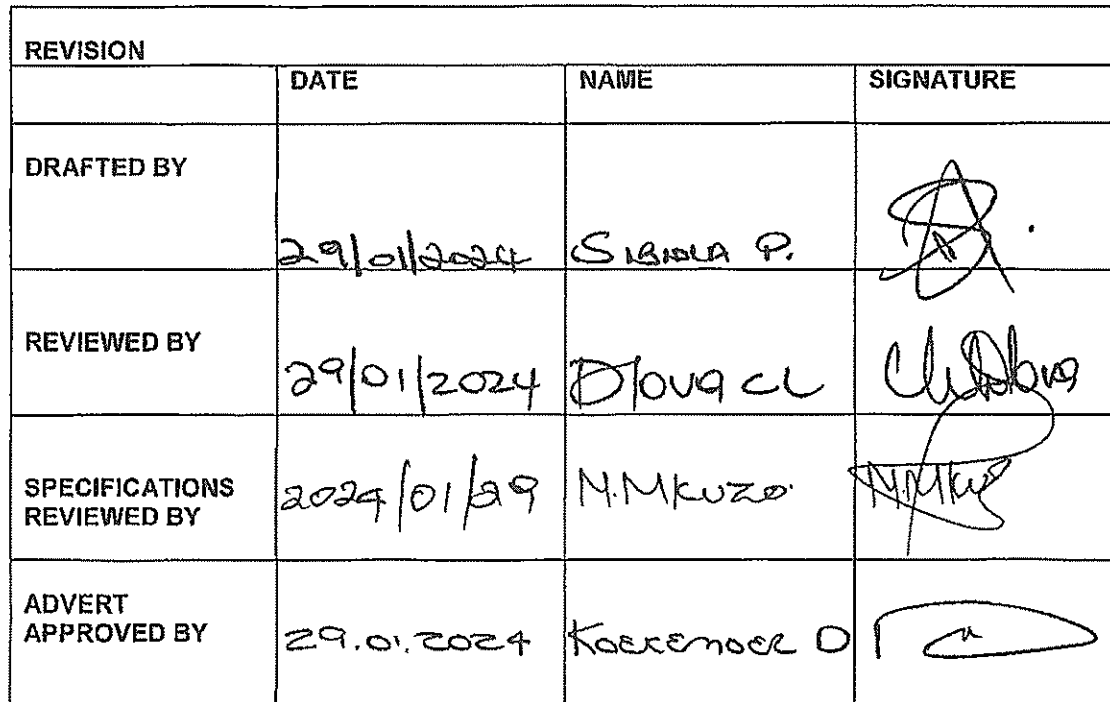 REVISION
DATE NAME SIGNATURE
DRAFTED BY
29/01/2024 P.
REVIEWED BY
29/01/2024 Dlova CL
SPECIFICATIONS
REVIEWED BY
2024/01/29 M.Mkuzo
ADVERT
APPROVED BY
29.01.2024 KOEKEMOER D